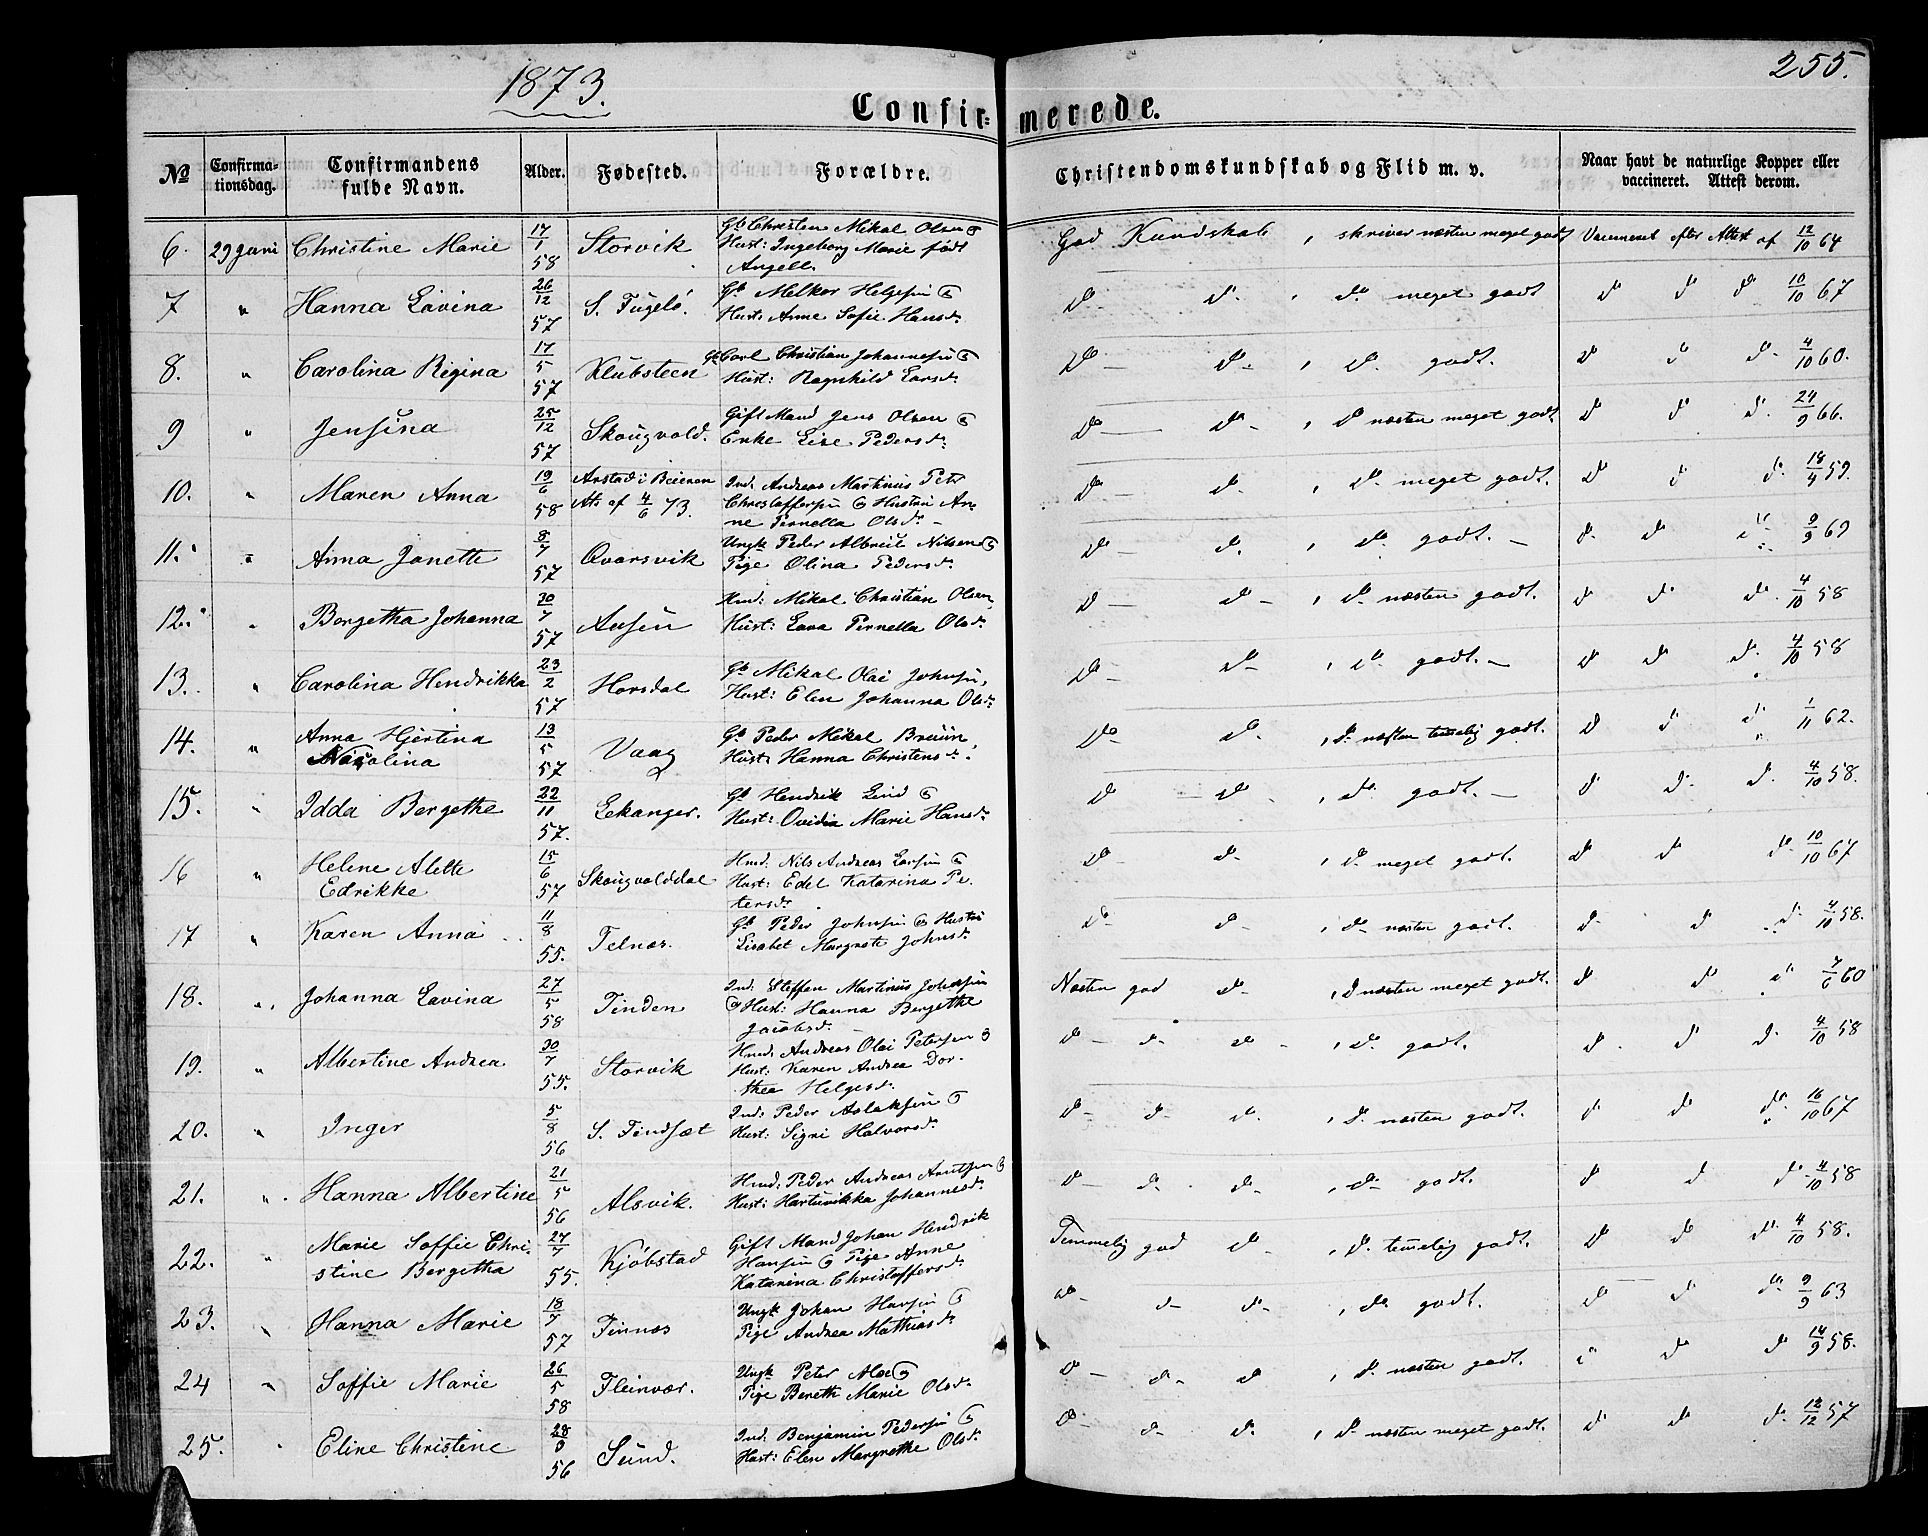 1873.
255.
Confirmerede.
№
Confirmationsdag.
Confirmandens fulde Navn.
Alder.
Fødested.
Forældre.
Christendomskundskab og Flid m. v.
Naar havt de naturlige Kopper eller vaccineret. Attest derom.
6. 29 Juni Christine Marie 17/1 58 Storvik Gb Christen Mikal Olsen & God Kundskab, skriver næsten meget godt Vaccineret efter Attest af 12/10 64
Hust: Ingeborg Marie født
Angell.
7 " Hanna Lavina 26/12 57 S. Fugelö. Gb. Melker Helgesen & do do, do meget godt do do do 10/10 67
Hust: Anne Sofie Hansdr
8. " Carolina Regina 17/5 57 Klubsteen Gb Carl Christian Johannesen & do do, do godt. do do do 4/10 60.
Hust: Ragnhild Larsdr
9 " Jensina 25/12 57 Skougvold. Gift Mand Jens Olsen & do do, do næsten meget godt. do do do 24/9 66.
Enke Lise Pedersdr
10. " Maren Anna 19/6 58 Arstad i Beieren Ind. Andreas Martinus Petr do do, do meget godt. do do do 18/4 59.
Att: af 4/6 73. Christoffersen & Hustru An-
ne Pernella Olsdr
11. " Anna Janette 8/7 57 Qvarsvik Ungk Peder Albreit Nilsen & do do, do godt. do do do 9/9 69
Pige Olina Pedersdr
12. " Bergetha Johanna 30/7 57 Ansen Hmd: Mikal Christian Olsen, do do, do næsten godt. do do do 4/10 58
Hust: Lava Pernella Olsdr
13. " Carolina Hendrikka 23/2 57 Horsdal Gb Mikal Olai Johnsen, do do, do godt. do do do 4/10 58
Hust: Elen Johanna Olsdr
14. " Anna Hjertina 13/5 57 Vaag Gb Peder Mikal Bruun, do do, do næsten temelig godt. do do do 1/11 62.
Karolina Hust: Hanna Christensdr.
15. " Idda Bergethe 22/11 57. Eekanger. Gb Hendrik Lind & do do, do godt. do do do 4/10 58.
Hust: Ovidia Marie Hansdr
16 " Helene Alette 15/6 57 Skougvolddal Hmd: Nils Andreas Larsen & do do, do meget godt. do do do 10/10 67
Edrikke Hust: Edel Katarina Pe-
tersdr.
17 " Karen Anna 11/8 55. Felnæs. Gb Peder Johnsen & Hustru do do, do næsten godt. do do do 4/10 58.
Lisabet Margrete Johnsdr
18. " Johanna Lavina 27/5 58 Tinden Ind. Steffen Martinus Johnsen Næsten god do, do næsten meget godt. do do do 7/6 60
& Hust: Hanna Bergethe
Jacobsdr.
19. " Albertine Andrea 30/7 55. Storvik Hmd. Andreas Olai Petersen & do do do, do godt. do do do 4/10 58
Hust: Karen Andrea Dor-
thea Helgesdr.
20. " Inger 5/8 56 S. Findsæt Ind: Peder Aslaksen & do do do, do næsten godt. do do do 16/10 67
Hust: Signi Halvorsdr
21. " Hanna Albertine 21/5 56 Alsvik. Hmd: Peder Andreas Arntsen & do do do, do godt. do do do 4/10 58
Hust: Hartuvikka Johannesdr
22. " Marie Soffie Chri- 27/7 55. Kjøbstad Gift Mand Johan Hendrik Temmelig god do, do temelig godt. do do do 4/10 58.
stine Bergetha Hansen & Pige Anne
Katarina Christoffersdr
23. " Hanna Marie 18/7 57 Finnæs Ungk Johan Hansen & do do do, do godt. do do do 9/9 63
Pige Andrea Mathiasdr
24 " Soffie Marie 26/5 58 Fleinvær. Ungk Peter Moe & do do do, do næsten godt. do do do 14/9 58.
Pige Bereth Marie Olsdr
25. " Eline Christine 28/9 56 Sund. Ind. Benjamin Pedersen & do do do, do næsten meget godt. do do do 12/12 57
Hust: Elen Margrethe Olsdr